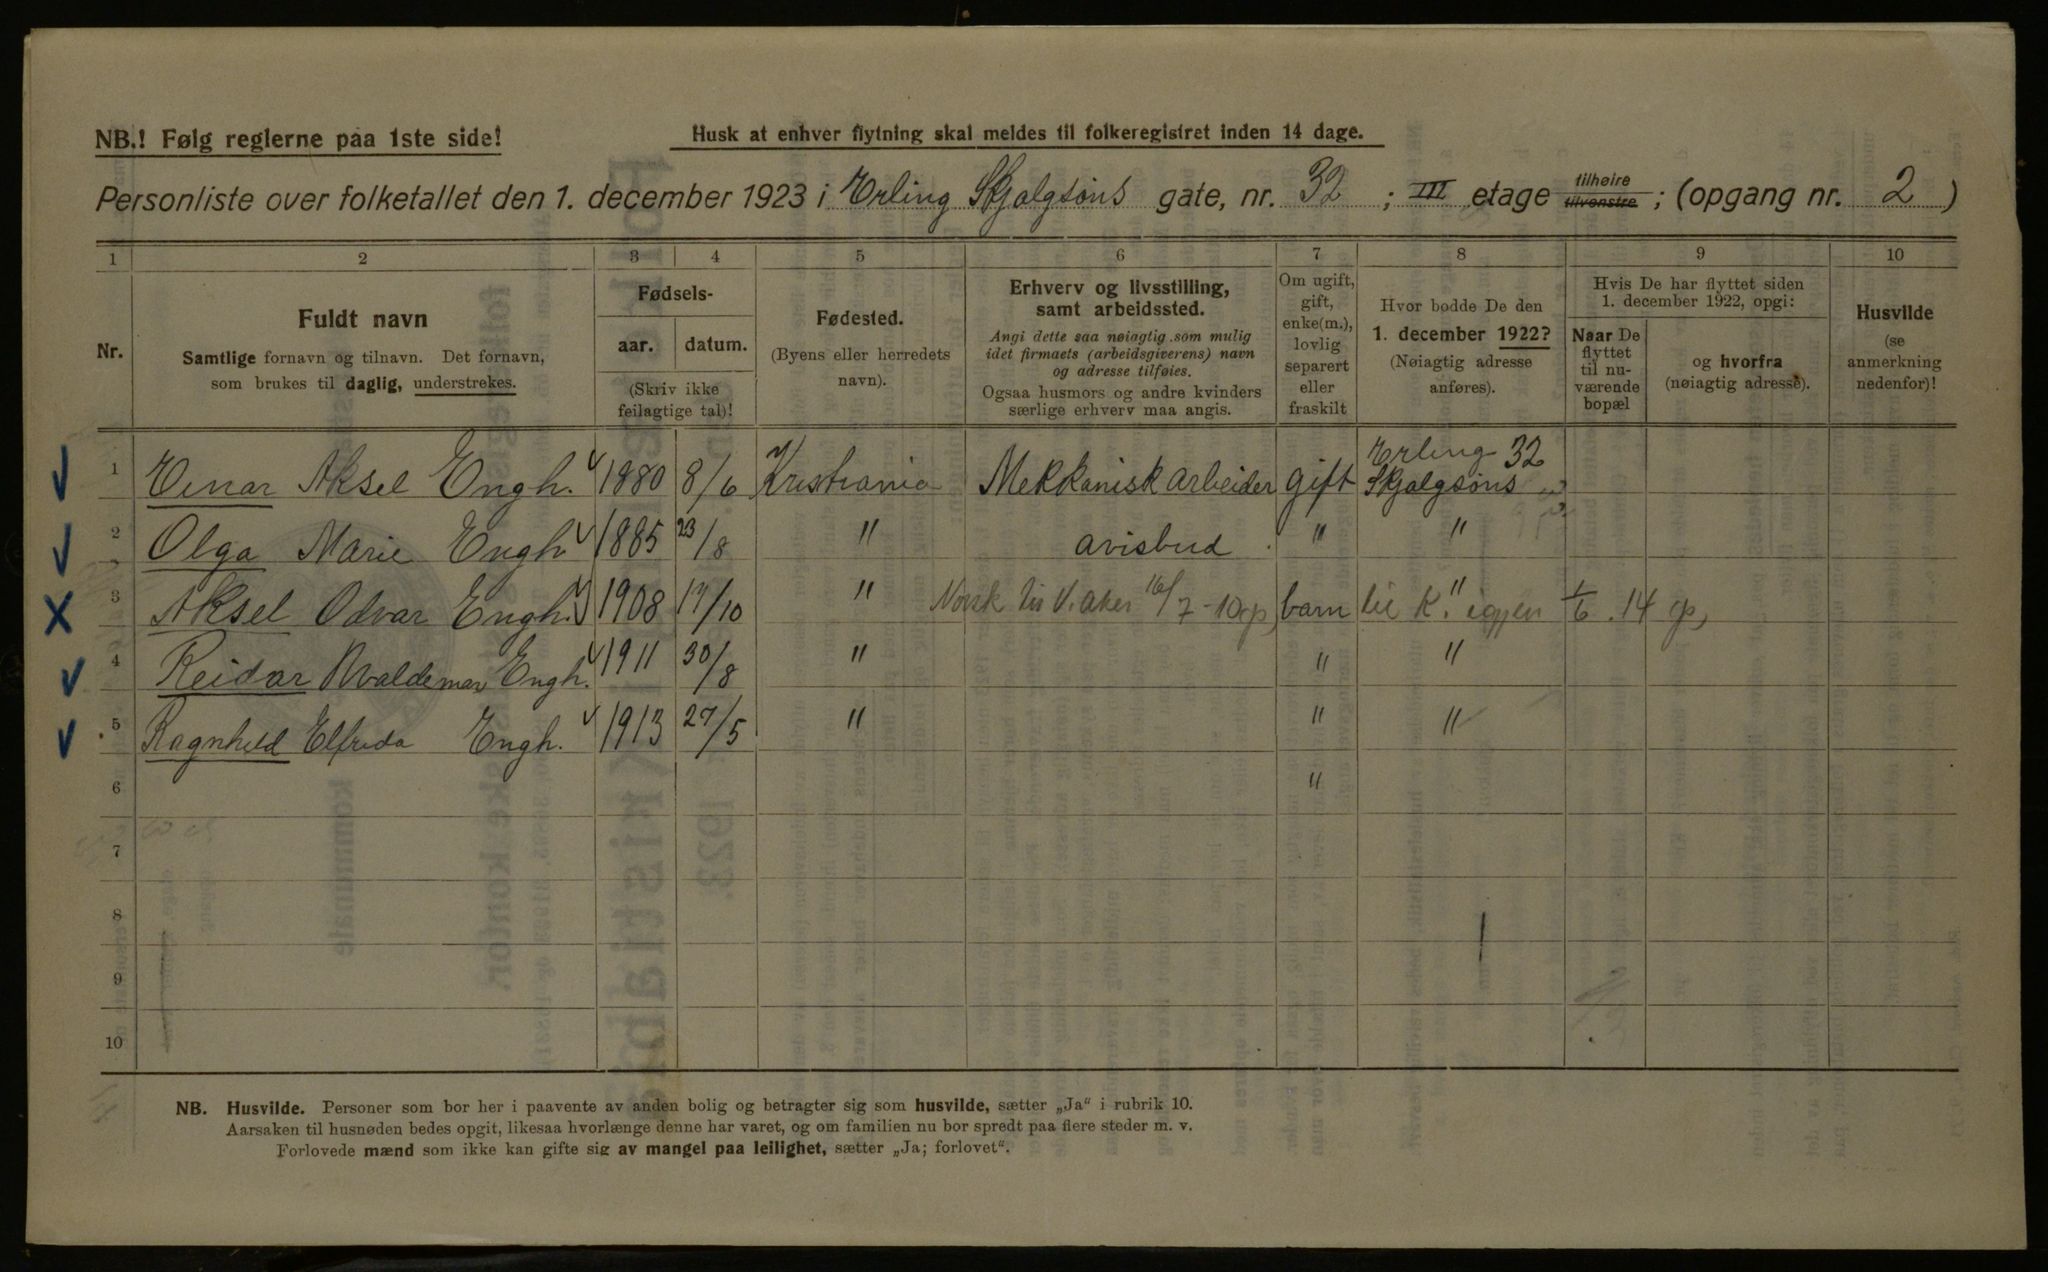 NB.! Følg reglerne paa 1ste side!
Husk at enhver flytning skal meldes til folkeregistret inden 14 dage.
Personliste over folketallet den 1. december 1923 i Erling Skjalgsøns gate, nr. 32 ; III etage tilhøire tilvenstre ; (opgang nr. 2 )
1 2 3 4 5 6 7 8 9 10
Nr.
Fuldt navn
Samtlige fornavn og tilnavn. Det fornavn,
som brukes til daglig, understrekes.
Fødsels-
aar. datum.
(Skriv ikke
feilagtige tal)!
Fødested.
(Byens eller herredets
navn).
Erhverv og livsstilling,
samt arbeidssted.
Angi dette saa nøiagtig som mulig
idet firmaets (arbeidsgiverens) navn
og adresse tilføies.
Ogsaa husmors og andre kvinders
særlige erhverv maa angis.
Om ugift,
gift,
enke(m.),
lovlig
separert
eller
fraskilt
Hvor bodde De den
1. december 1922?
(Nøiagtig adresse
anføres).
Hvis De har flyttet siden
1. december 1922, opgi:
Naar De
flyttet
til nu-
værende
bopæl
og hvorfra
(nøiagtig adresse).
Husvilde
(se
anmerkning
nedenfor)!
1 Einar Aksel Engh. 1880 8/6 Kristiania Mekkanisk arbeider gift Erling 32
Skjalgsøns
2 Olga Marie Engh 1885 23/8 " avisbud " "
3 Aksel Odvar Engh. 1908 17/10 " Norsk til V. aker 16/7 - barn til K. " igjen 1/6 . 14
4 Reidar Waldemar Engh. 1911 30/8 " " "
5 Ragnhild Elfrida Engh. 1913 27/5 " " "
6 "
7
8
9
10
NB. Husvilde. Personer som bor her i paavente av anden bolig og betragter sig som husvilde, sætter „Ja“ i rubrik 10.
Aarsaken til husnøden bedes opgit, likesaa hvorlænge denne har varet, og om familien nu bor spredt paa flere steder m. v.
Forlovede mænd som ikke kan gifte sig av mangel paa leilighet, sætter „Ja; forlovet“.